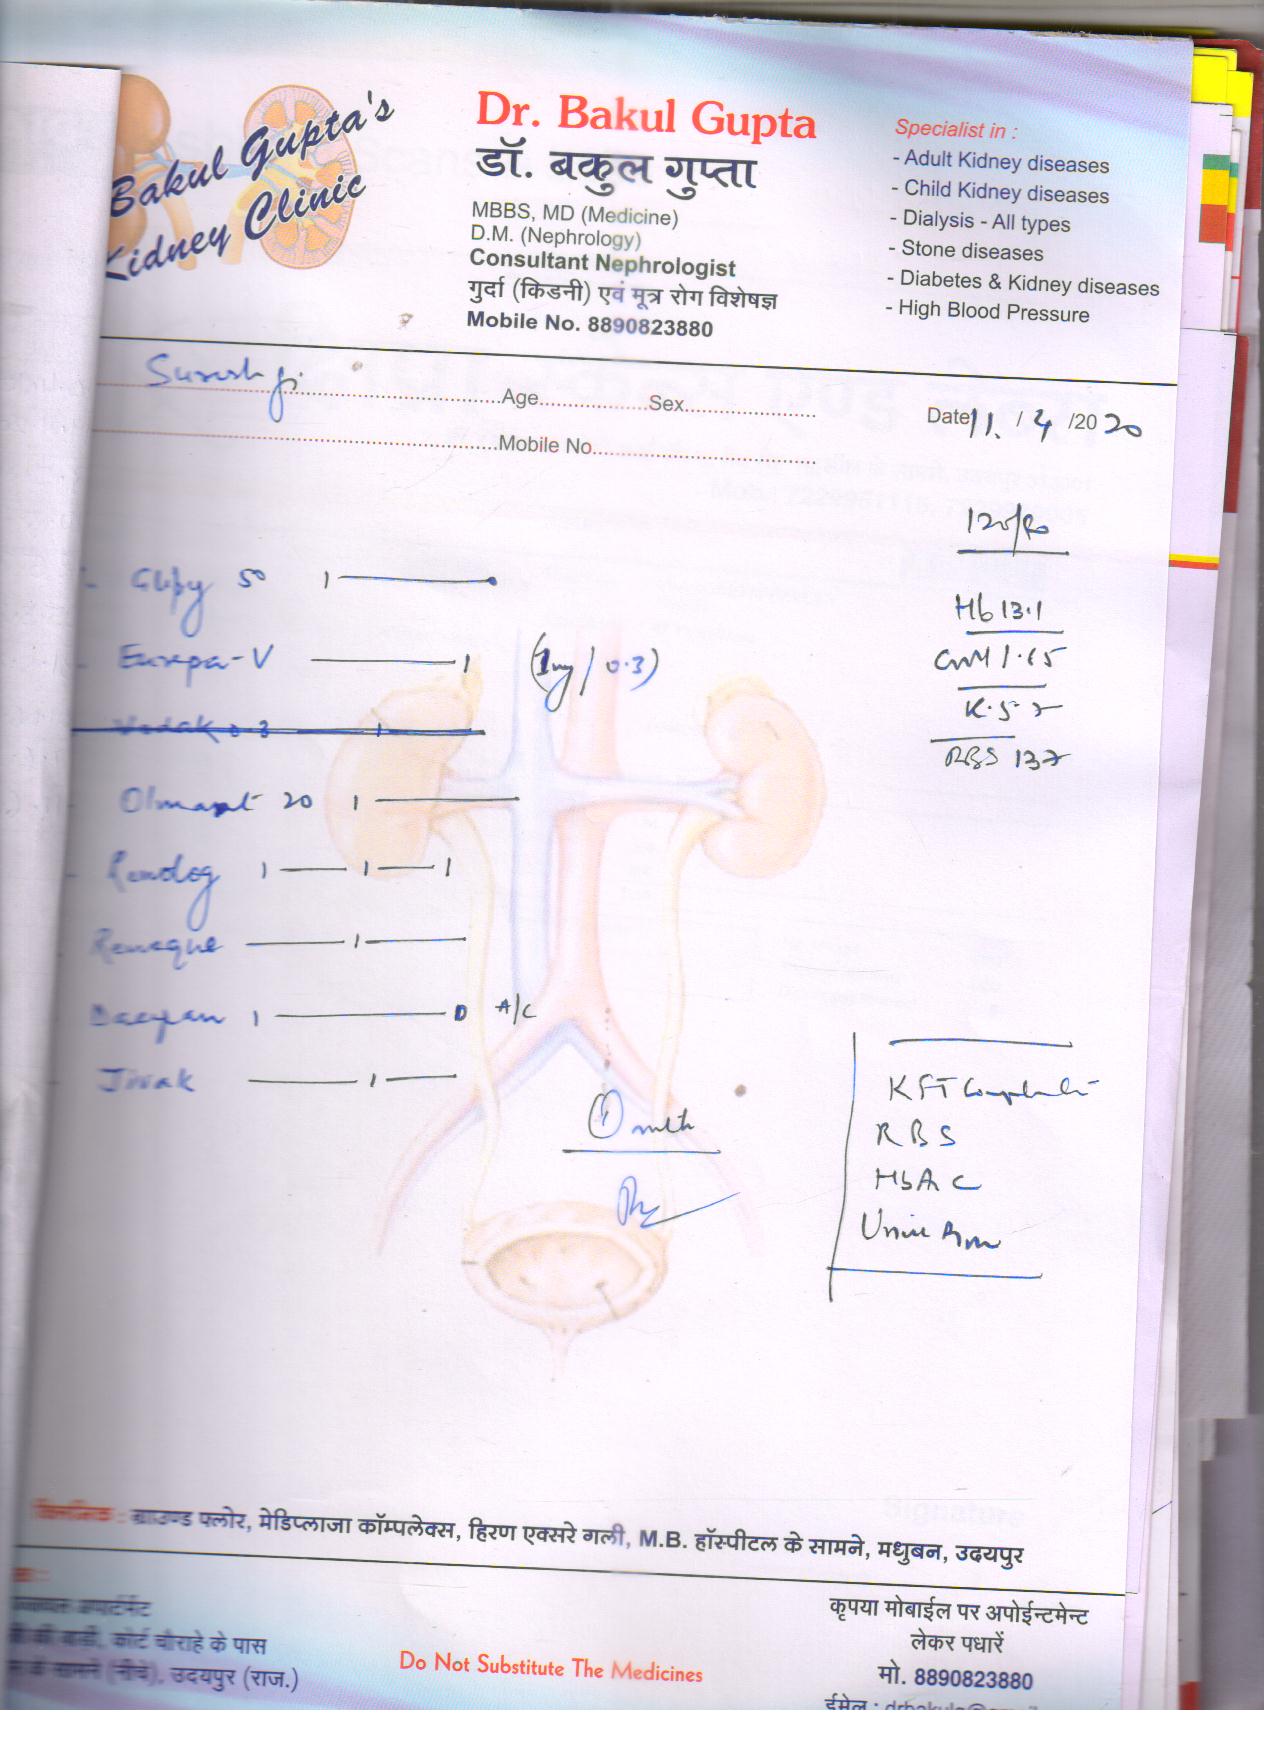 Bakul Gupta's
Kidney Clinic
Dr. Bakul Gupta
डॉ. बकुल गुप्ता
MBBS, MD (Medicine)
D.M. (Nephrology)
Consultant Nephrologist
गुर्दा (किडनी) एवं मूत्र रोग विशेषज्ञ
Mobile No. 8890823880
Specialist in :
- Adult Kidney diseases
- Child Kidney diseases
- Dialysis - All types
- Stone diseases
- Diabetes & Kidney diseases
- High Blood Pressure
Suresh ji Age Sex
Date 11. / 4 /20 20
Mobile No.
120/80
Hb 13.1
1.65
K. 5.2
RBS 137
50 1
-V 1 (1mg / 0.3)
0.3 1
20 1
Renolog 1 1 1
1
1 D A/C
Jivak 1
① mth
KFT Complete
RBS
HbA1C
Urine
क्लिनिक : ग्राउण्ड फ्लोर, मेडिप्लाजा कॉम्पलेक्स, हिरण एक्सरे गली, M.B. हॉस्पीटल के सामने, मधुबन, उदयपुर
अपार्टमेंट
बाडी, कोर्ट चौराहे के पास
के सामने (नीचे), उदयपुर (राज.)
Do Not Substitute The Medicines
कृपया मोबाईल पर अपोईन्टमेन्ट
लेकर पधारें
मो. 8890823880
ईमेल :